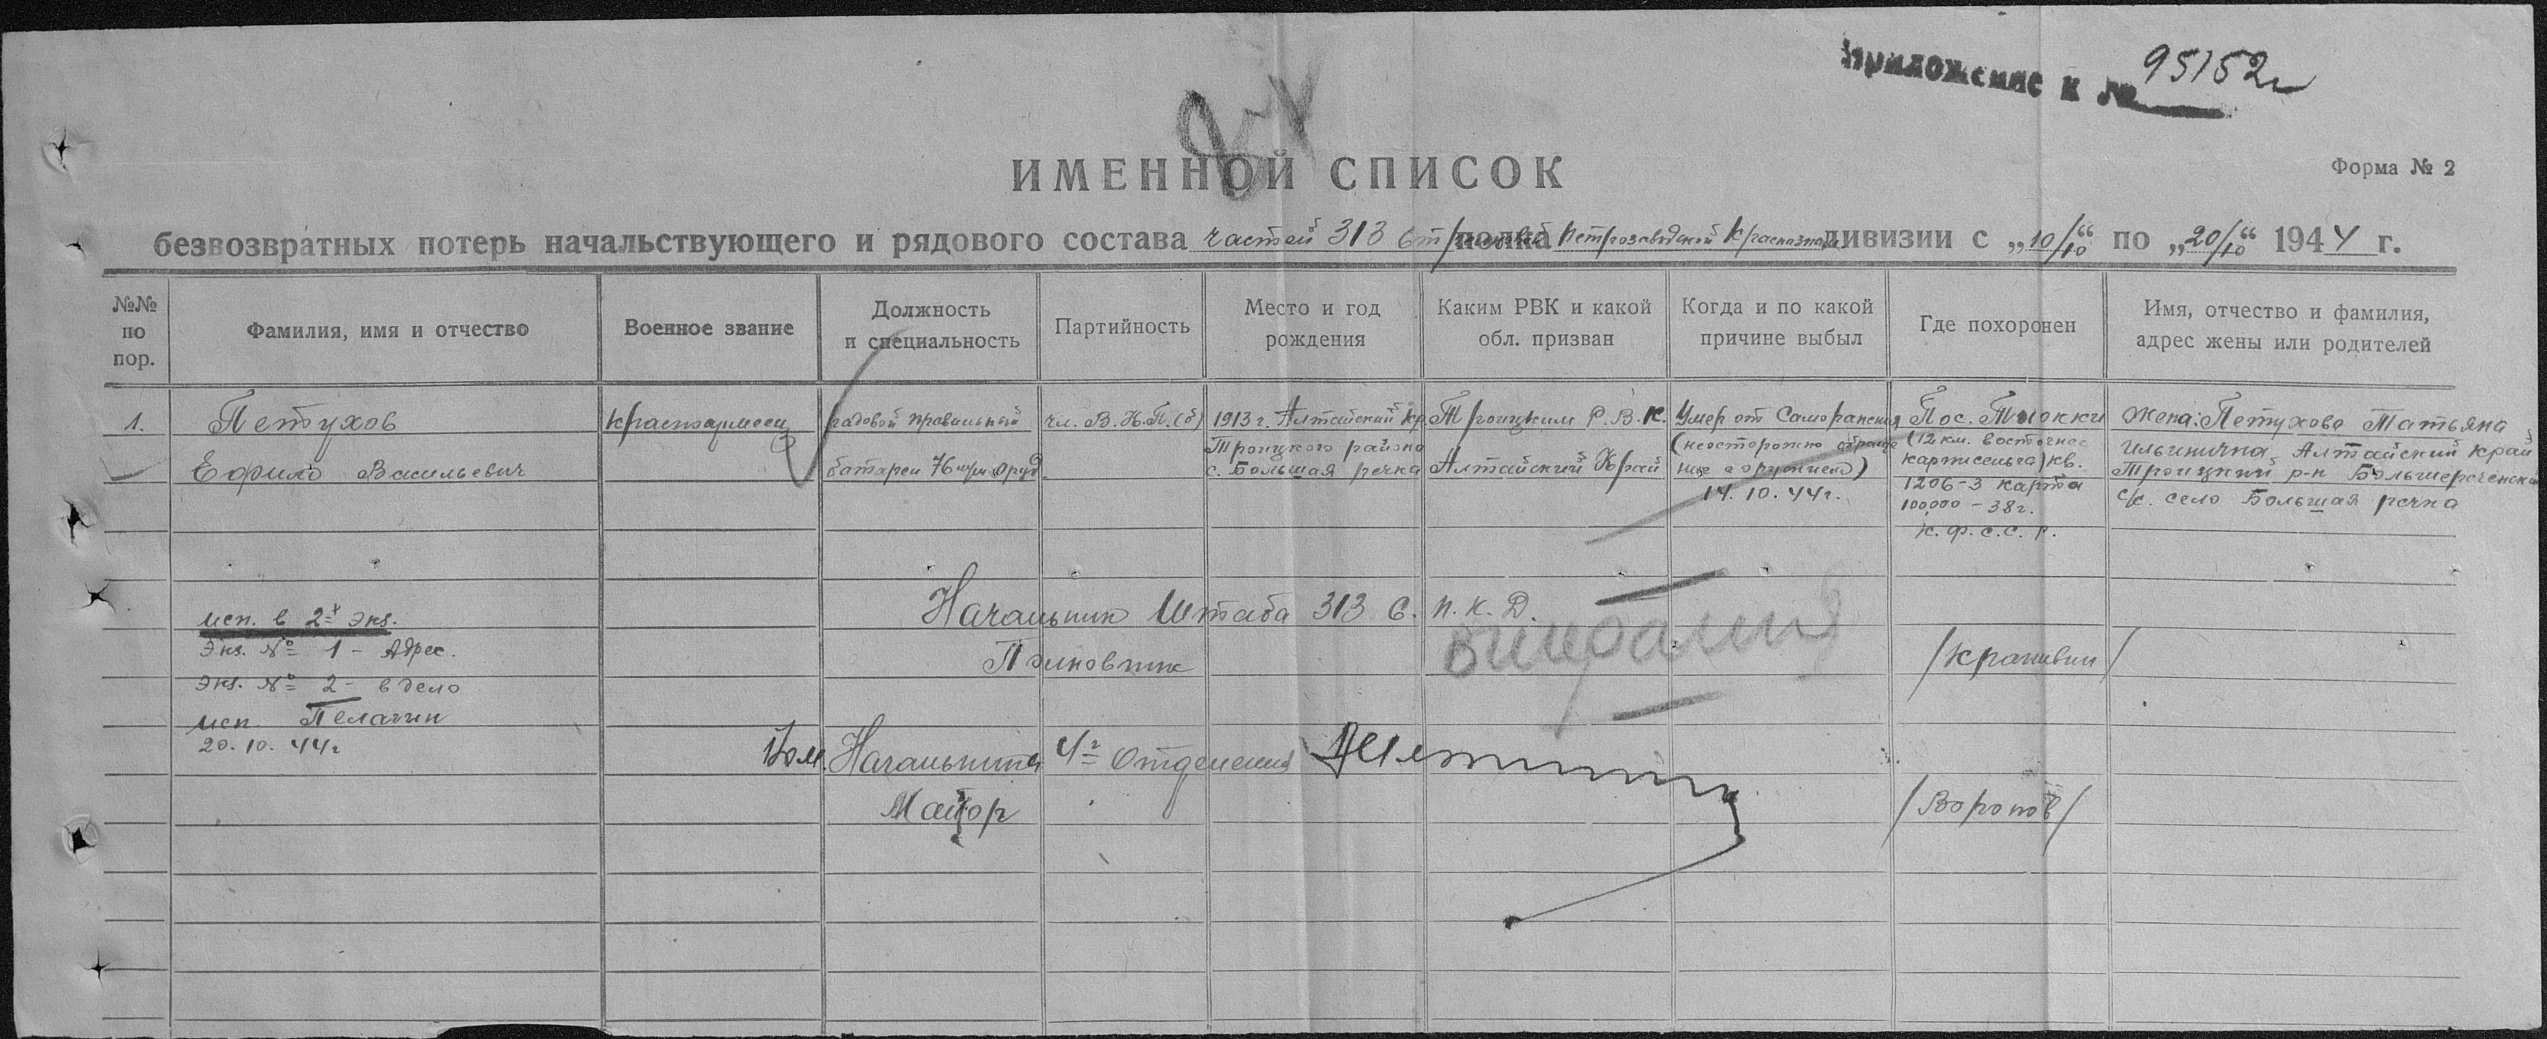 Приложение к № 95152
ИМЕННОЙ СПИСОК
Форма № 2
безвозвратных потерь начальствующего и рядового состава частей 313 стрелковой полка Петрозаводской Краснознам дивизии с „10/10“ по „20/10“ 1944 г.
№№ по пор.
Фамилия, имя и отчество
Военное звание
Должность и специальность
Партийность
Место и год рождения
Каким РВК и какой обл. призван
Когда и по какой причине выбыл
Где похоронен
Имя, отчество и фамилия, адрес жены или родителей
1.
Петухов
Ефим Васильевич
красноармеец
рядовой правильный
батареи 76 м/м оруд.
чл. В.К.П.(б)
1913 г. Алтайский кр.
Троицкого района
с. Большая речка
Троицким Р.В.К.
Алтайский Край
Умер от Саморанения
(неосторожно обраще
ние с оружием)
14.10.44 г.
Пос. Тиокки
(12 км. восточнее
кархисельга) кв.
1206-3 карта
100,000 - 38 г.
К.Ф.С.С.Р.
Жена: Петухова Татьяна
Ильинична, Алтайский край
Троицкий р-н Большереченский
с/с. село Большая речка
Начальник Штаба 313 С.П.К.Д.
Полковник
/Крапивин/
исп. в 2х экз.
Экз. № 1 - Адрес.
Экз. № 2 - в дело
исп. Пелагин
20.10.44 г
Пом. Начальника 4го Отделения
Майор
/Воронов/